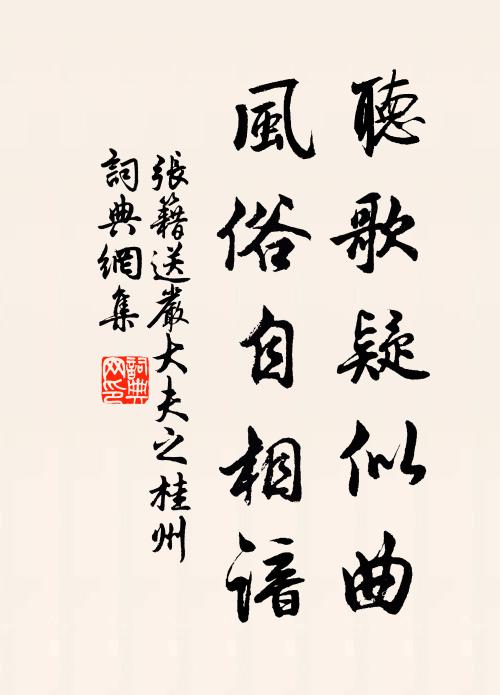 聽歌疑似曲
風俗自相諳
張籍送嚴大夫之桂州
詞典網集
詞典網印